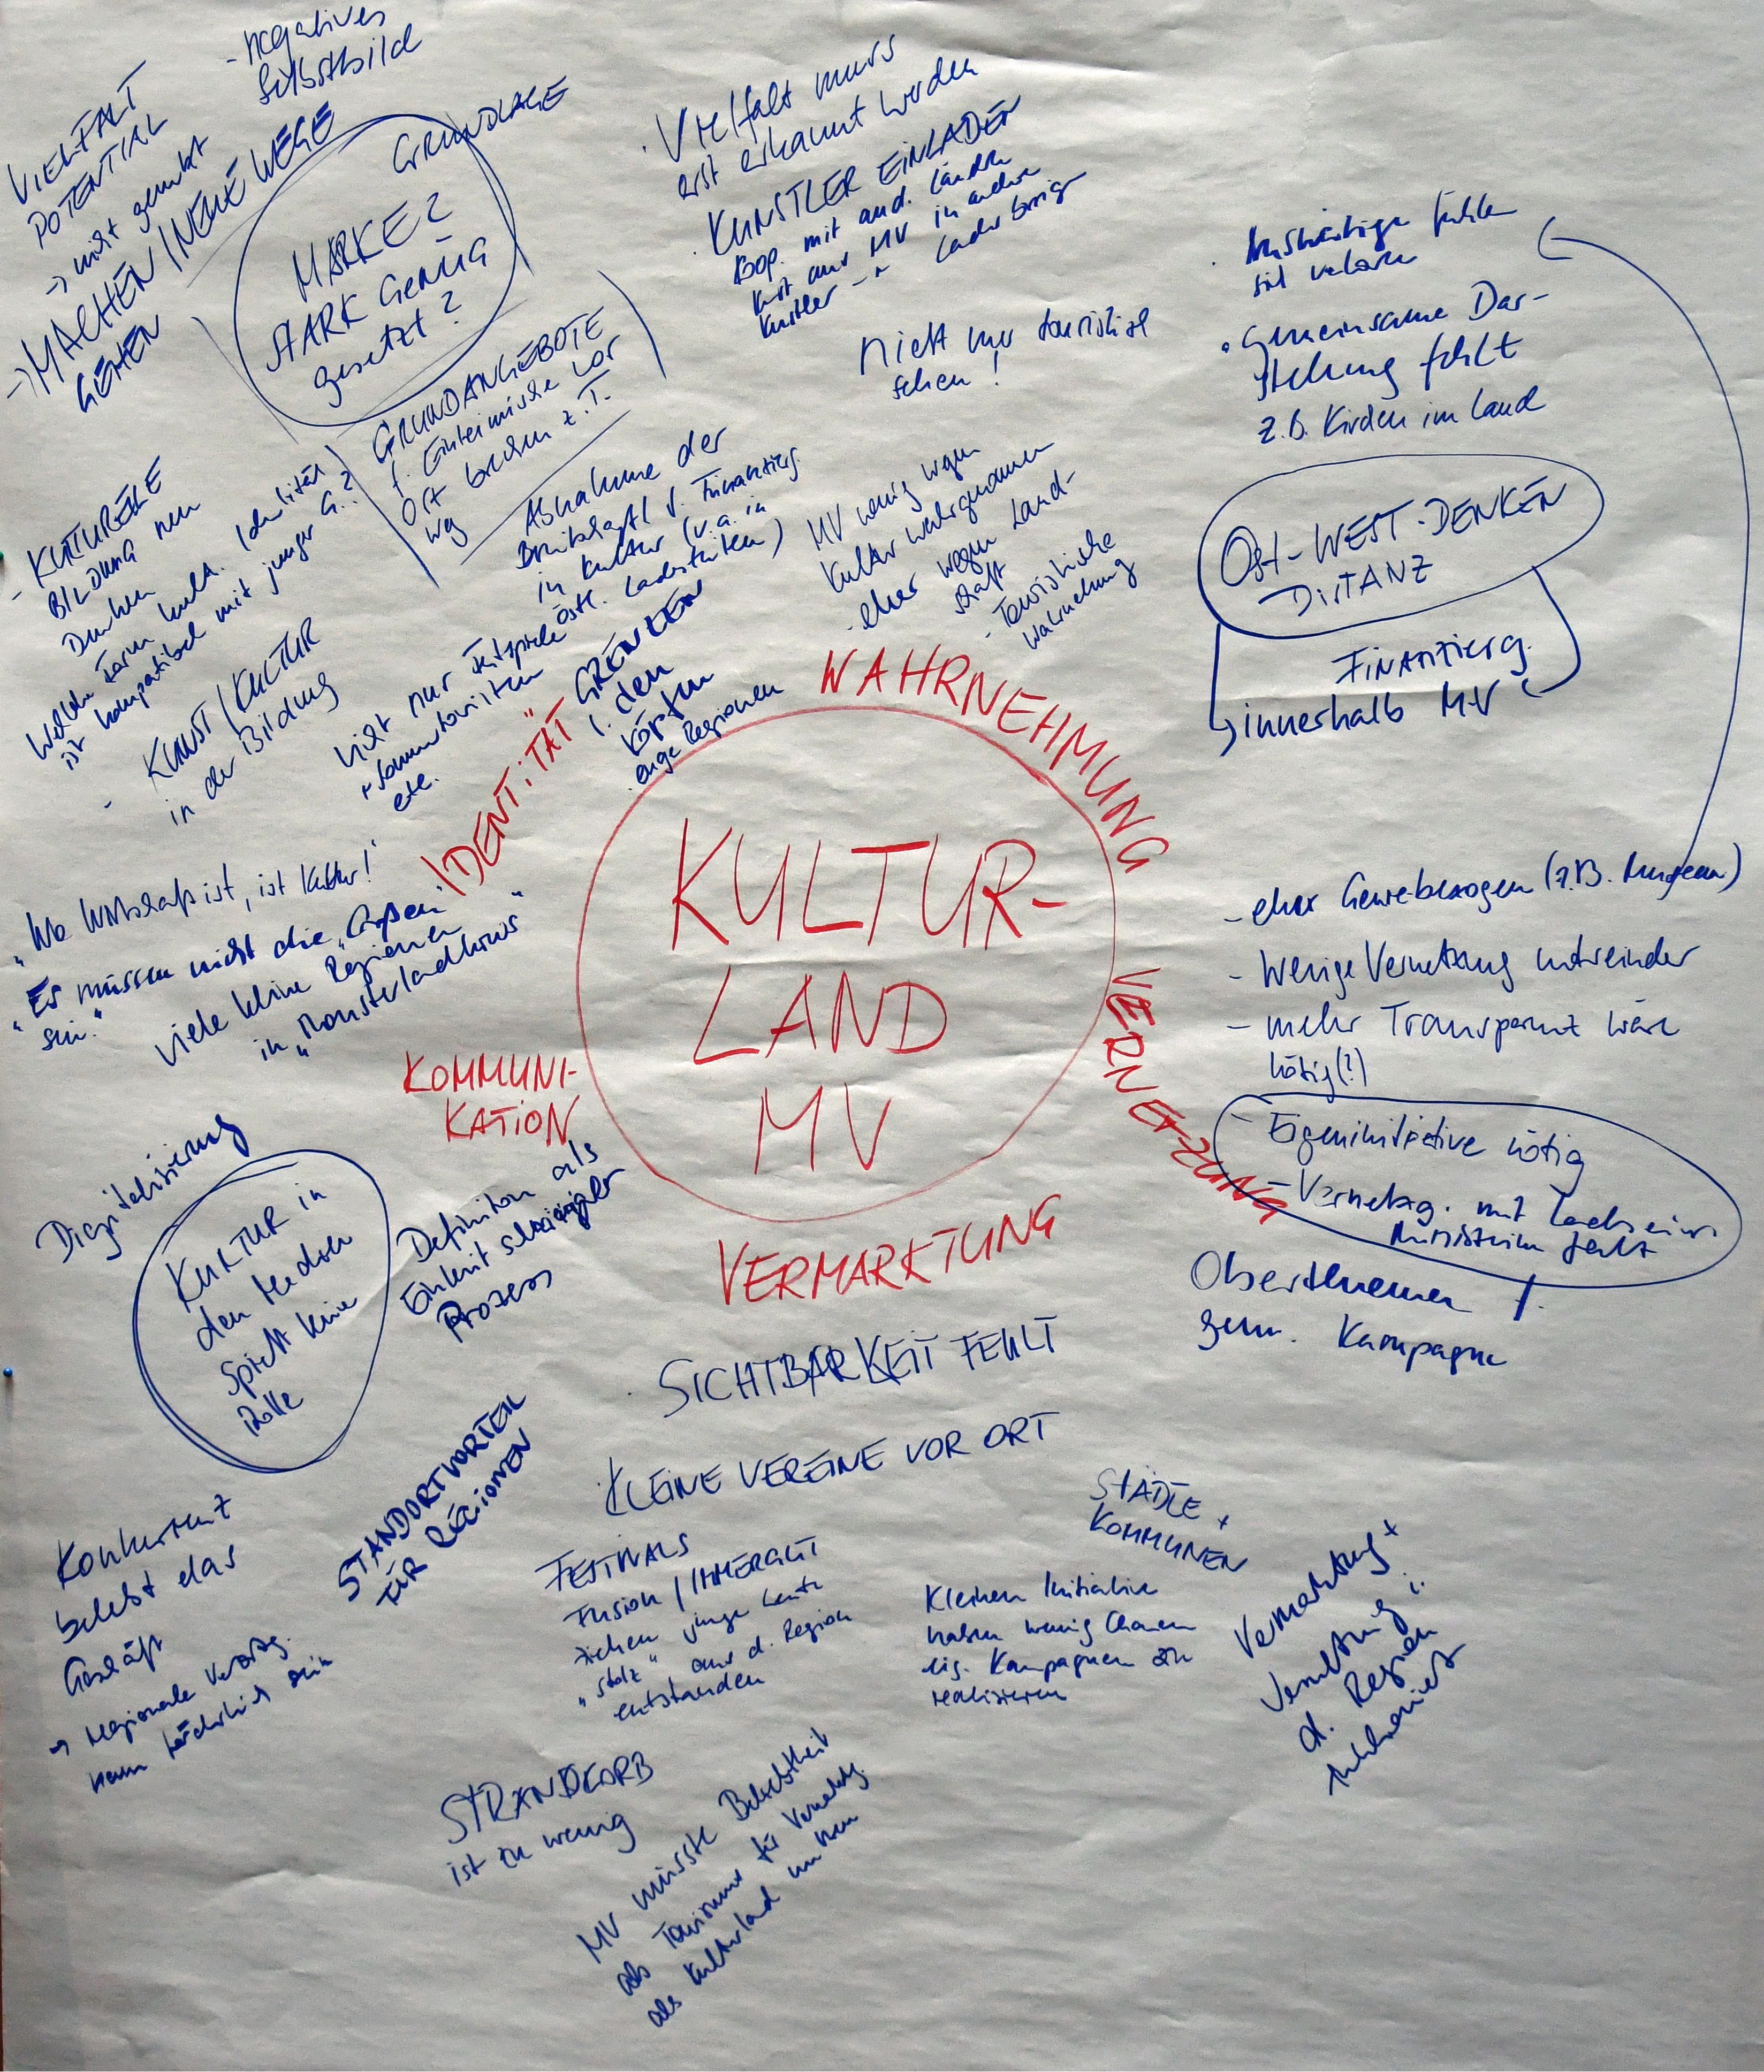 - negatives
Selbstbild
VIELFALT
POTENTIAL
→ nicht genutzt
→ MACHEN / NEUE WEGE
GEHEN
GRUNDLAGE
MARKE?
STARK GENUG
gesetzt?
GRUNDANGEBOTE
f. Einheimische vor
Ort brechen z.T.
weg
· Vielfalt muss
erst erkannt werden
· KÜNSTLER EINLADEN
Koop. mit and. Länder
Kunst aus MV in andere
Künstler Länder
Nicht nur touristisch
sehen!
· Auswärtige fühlen
sich verloren
· Gemeinsame Dar-
stellung fehlt
z.B. Kirchen im Land
OST-WEST-DENKEN
DISTANZ
FINANZIERG.
innerhalb MV
- KULTURELLE
BILDUNG neu
Denken
Welche Form kult. Identität
ist kompatibel mit junger G.?
- KUNST / KULTUR
in der Bildung
Abnahme der
Bereitschaft d. Finanzierg.
in Kultur (v.a. in
östl. Landesteilen)
Nicht nur Festspiele
+ Sommertouristen
etc.
MV wenig wegen
Kultur wahrgenommen
- eher wegen Land-
schaft
- Touristische
Wahrnehmung
GRENZEN
i. den
Köpfen
· enge Regionen
"IDENTITÄT"
WAHRNEHMUNG
KULTUR-
LAND
MV
VERNETZUNG
VERMARKTUNG
KOMMUNI-
KATION
"Wo Wirtschaft ist, ist Kultur!"
"Es müssen nicht die "Großen"
sein."
Viele kleine Regionen
in "Monsterlandkreis"
- eher Genrebezogen (z.B. Museen)
- Wenige Vernetzung untereinander
- mehr Transparenz wäre
nötig(!)
- Eigeninitiative nötig
- Vernetzg. mit
Ministerium fehlt
Oberthemen f.
gem. Kampagne
Digitalisierung
KULTUR in
den Medien
spielt keine
Rolle
Definition als
Einheit schwieriger
Prozess
· SICHTBARKEIT FEHLT
KLEINE VEREINE VOR ORT
STANDORTVORTEIL
FÜR REGIONEN
Konkurrenz
belebt das
Geschäft
→ regionale Verortg.
kann hinderlich sein
FESTIVALS
Fusion / IMMERGUT
ziehen junge Leute
"stolz" aus d. Region
entstanden
STÄDTE +
KOMMUNEN
Kleinen Initiativen
haben wenig Chancen
eig. Kampagnen zu
realisieren
Vermarktung +
d. Region
STRANDKORB
ist zu wenig
MV müsste Beliebtheit
als Tourismus für Vermarktg.
als Kulturland nutzen